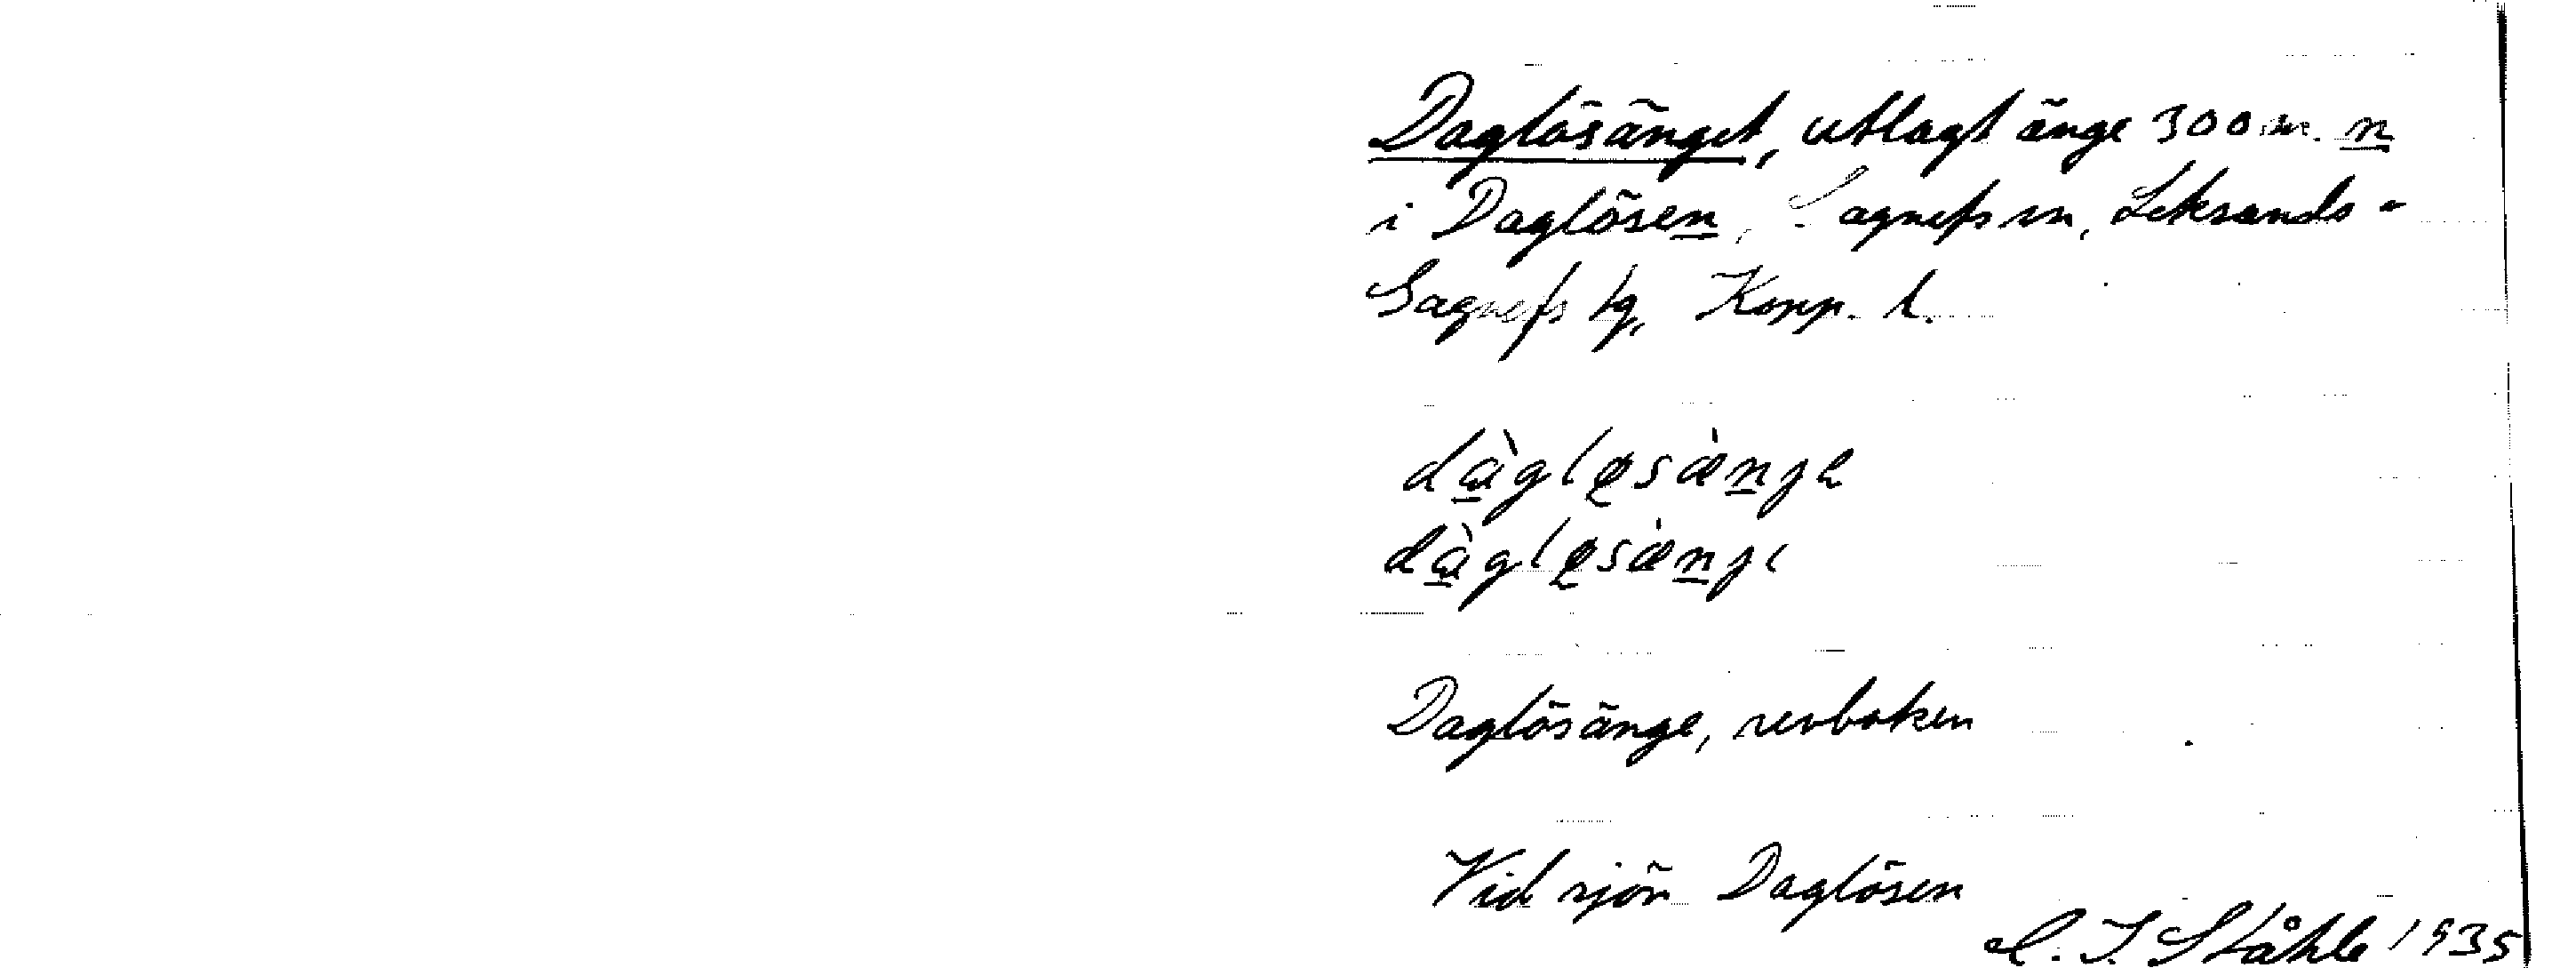 Daglösänget, utlagt änge 300 m. n
i Daglösen, Gagnefs sn, Leksands-
Gagnefs tg, Kopp. l.
dàgløsæ̀nʒe
dàgløsæ̀nʒı
Daglösänge, revboken
Vid sjön Daglösen
C. I. Ståhle 1935